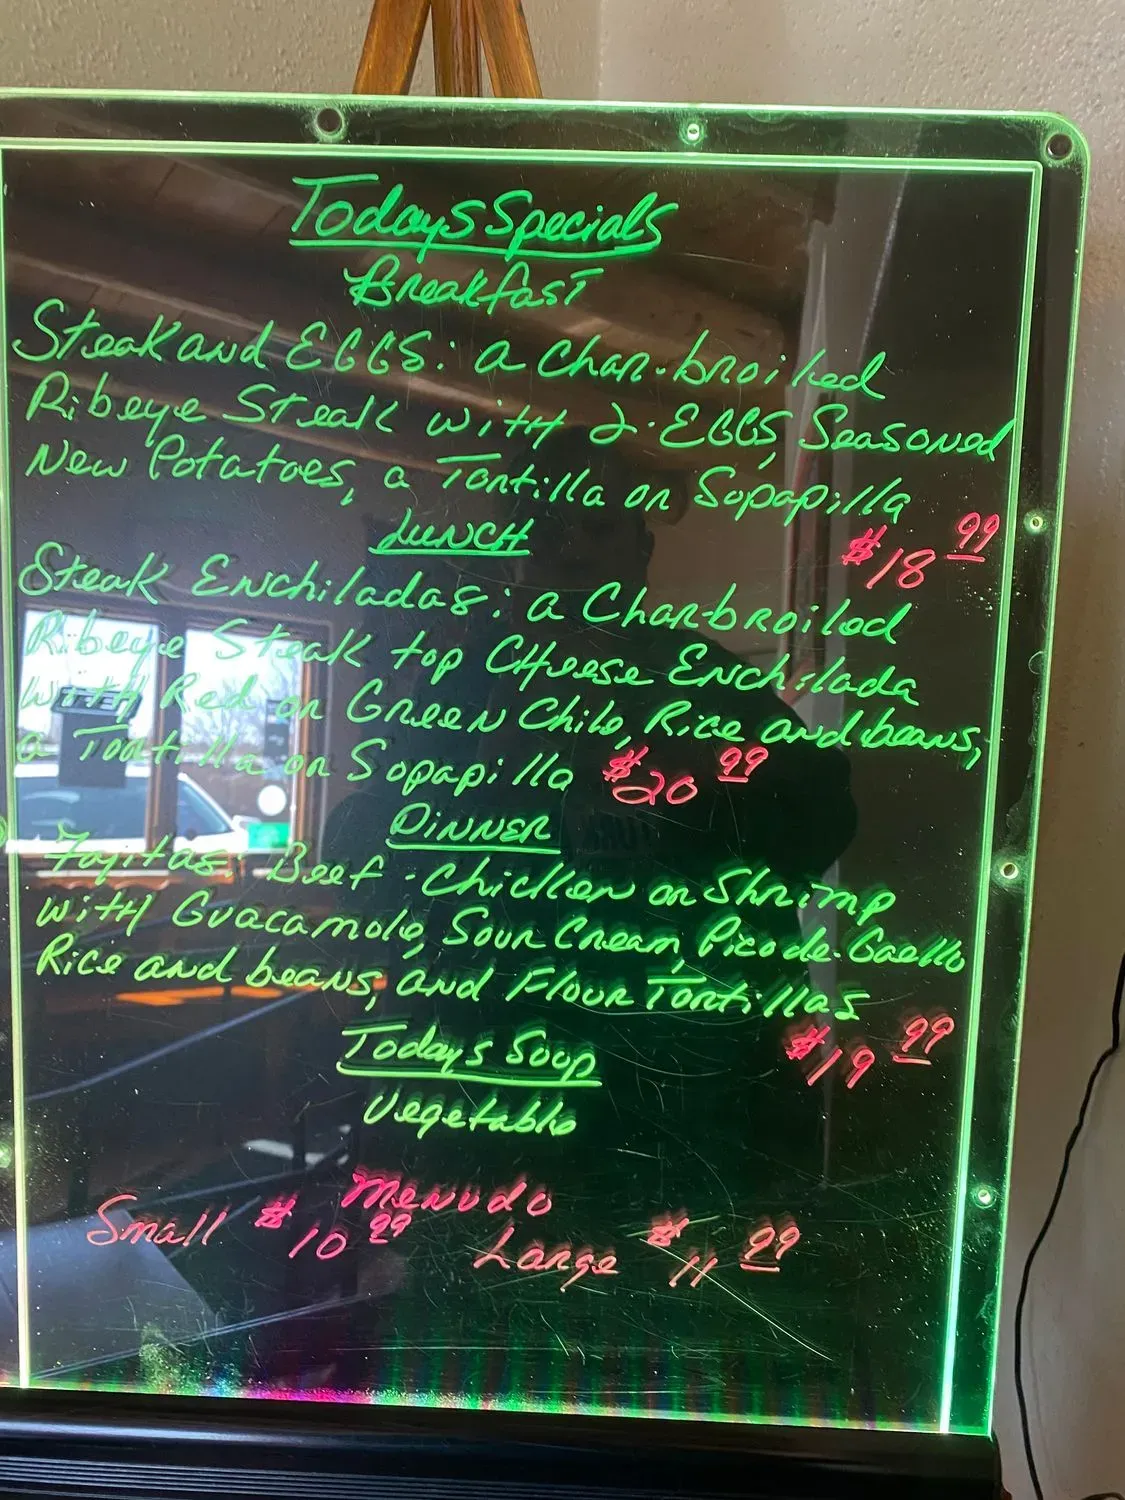 Todays Specials
Breakfast
Steak and EGGS: a Char-broiled
Ribeye Steak with 2-EGGS, Seasoned
New Potatoes, a Tortilla or Sopapilla
$18 99
LUNCH
Steak Enchiladas: a Char-broiled
Ribeye Steak top Cheese Enchilada
with Red or Green Chile, Rice and beans,
a Tortilla or Sopapilla $20 99
DINNER
Fajitas: Beef-Chicken or Shrimp
with Guacamole, Sour Cream, Pico de-Gaello
Rice and beans, and Flour Tortillas
$19 99
Todays Soup
Vegetable
Menudo
Small $10 99 Large $11 99